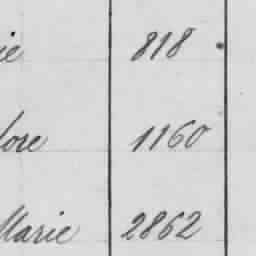 ie 818
lore 1160
Marie 2862